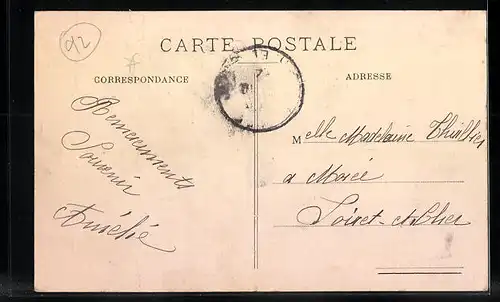 92
CARTE POSTALE
CORRESPONDANCE
ADRESSE
Remerciements
Souvenir
Melle Madelaine Thuillier
a Morée
Loir-et-Cher